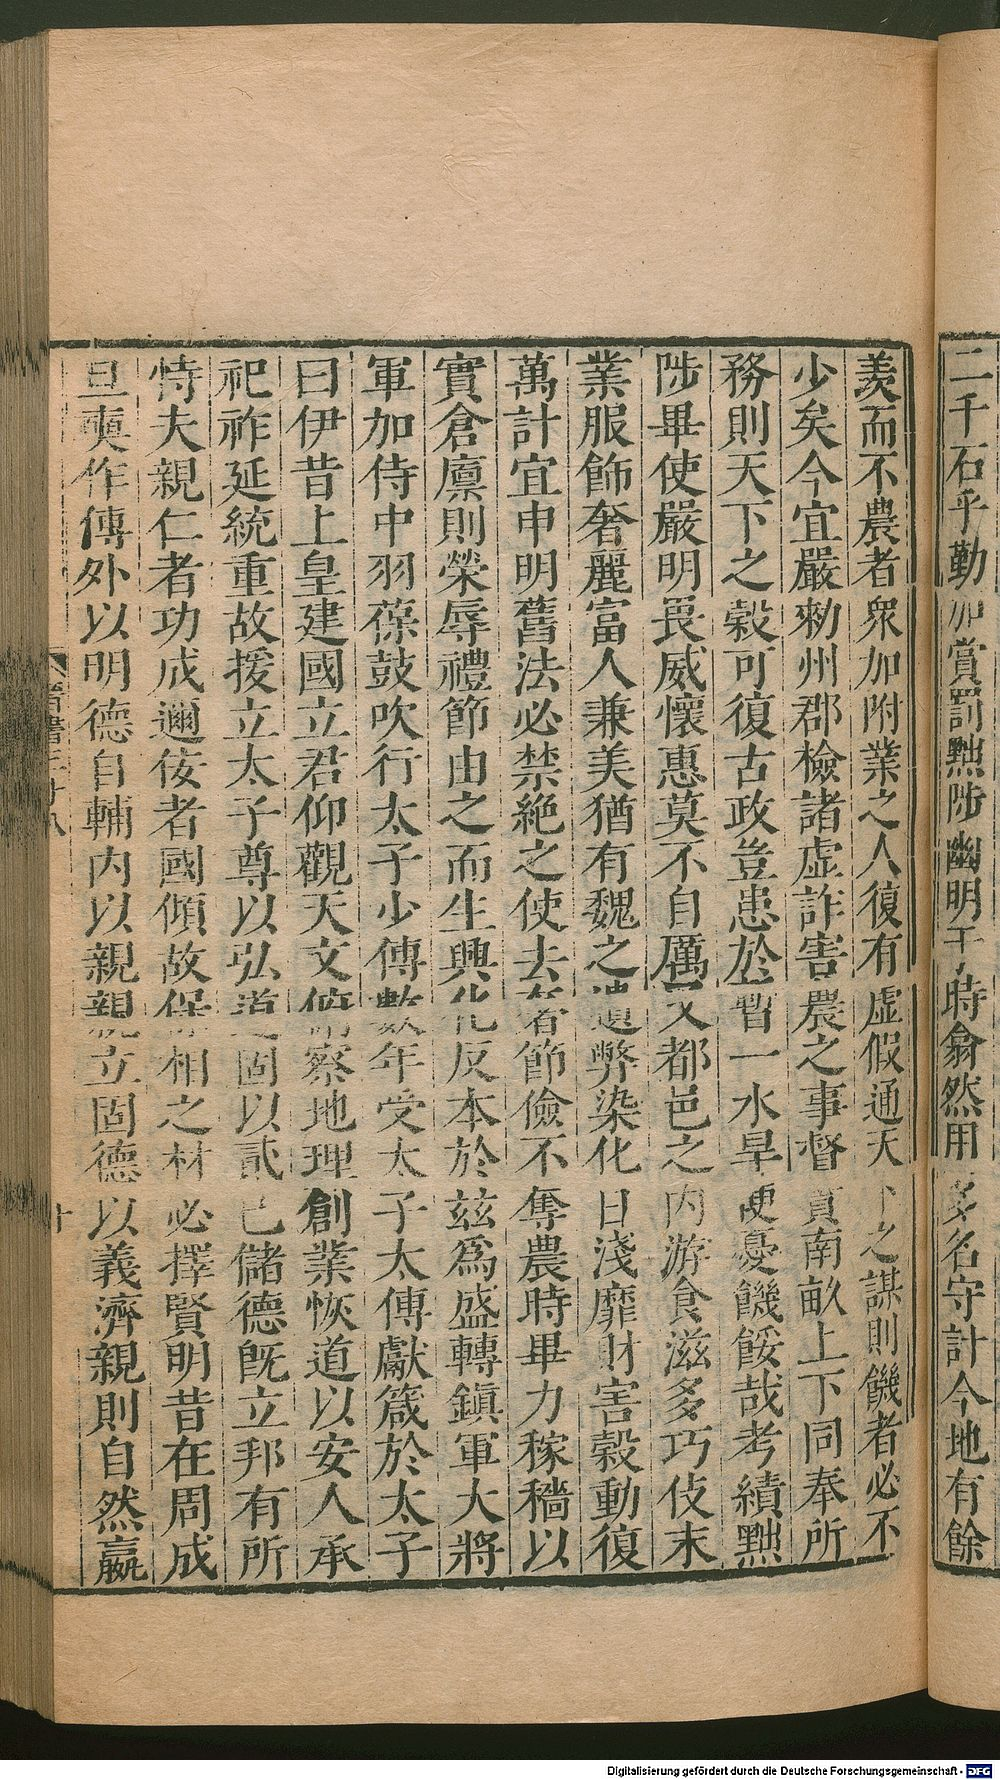 二千石乎勤加賞罰黜陟幽明于時翕然用多名守計今地有餘
羨而不農者衆加附業之人復有虛假通天下之謀則饑者必不
少矣今宜嚴勑州郡檢諸虛詐害農之事督實南畝上下同奉所
務則天下之穀可復古政豈患於暫一水旱便憂饑餒哉考績黜
陟畢使嚴明畏威懷惠莫不自厲又都邑之内游食滋多巧伎末
業服飾奢麗富人兼美猶有魏之遺弊染化日淺靡財害穀動復
萬計宜申明舊法必禁絶之使去奢節儉不奪農時畢力稼穡以
實倉廩則榮辱禮節由之而生興化反本於兹爲盛轉鎮軍大將
軍加侍中羽葆鼓吹行太子少傅數年受太子太傅獻箴於太子
曰伊昔上皇建國立君仰觀天文俯察地理創業恢道以安人承
祀祚延統重故援立太子尊以弘道固以貳己儲德旣立邦有所
恃夫親仁者功成邇佞者國傾故保相之材必擇賢明昔在周成
旦奭作傅外以明德自輔内以親親立固德以義濟親則自然嬴
晋書三十八
十
Digitalisierung gefördert durch die Deutsche Forschungsgemeinschaft - DFG